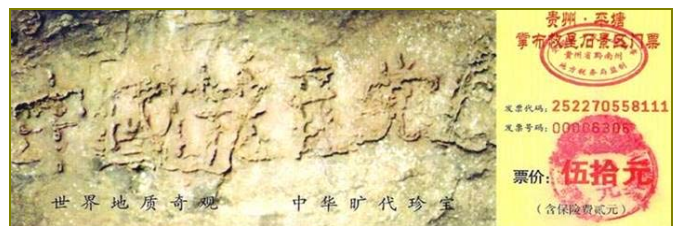 中国共产党
世界地质奇观 中华旷代珍宝
贵州·平塘
掌布救星石景区门票
贵州省黔南州
地方税务局监制
发票代码：252270558111
发票号码：00006306
票价：伍拾元
（含保险费贰元）